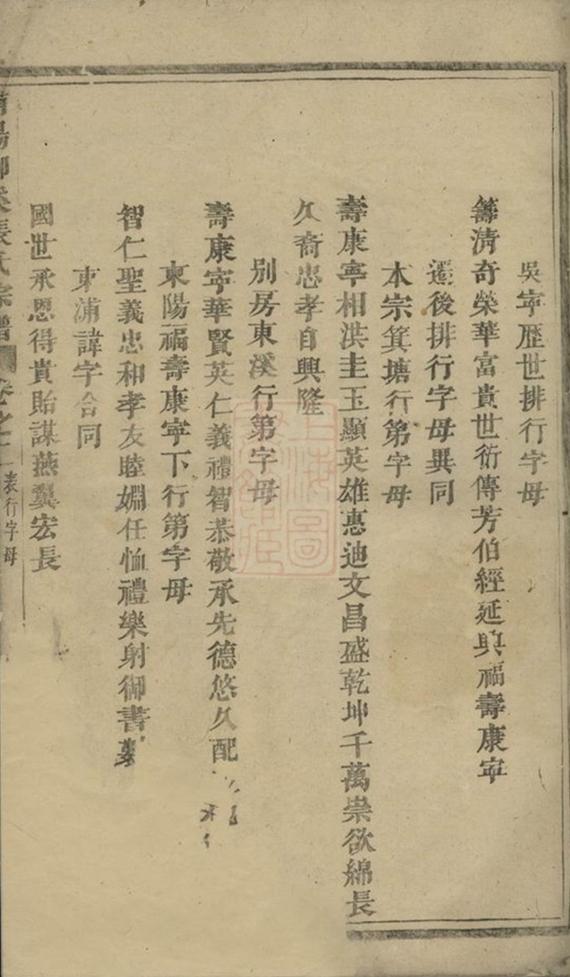 吳寧歷世排行字母
籌清奇榮華富貴世衍傳芳伯經延興福壽康寧
遷後排行字母異同
本宗箕塘行第字母
壽康寧相洪圭玉顯英雄惠迪文昌盛乾坤千萬崇欲綿長
久裔忠孝自興隆
別房東溪行第字母
壽康寧華賢英仁義禮智恭敬承先德悠久配
東陽福壽康寧下行第字母
智仁聖義忠和孝友睦婣任恤禮樂射御書
東浦諱字合同
國世承恩得貴貽謀燕翼宏長
張氏宗譜
表行字母